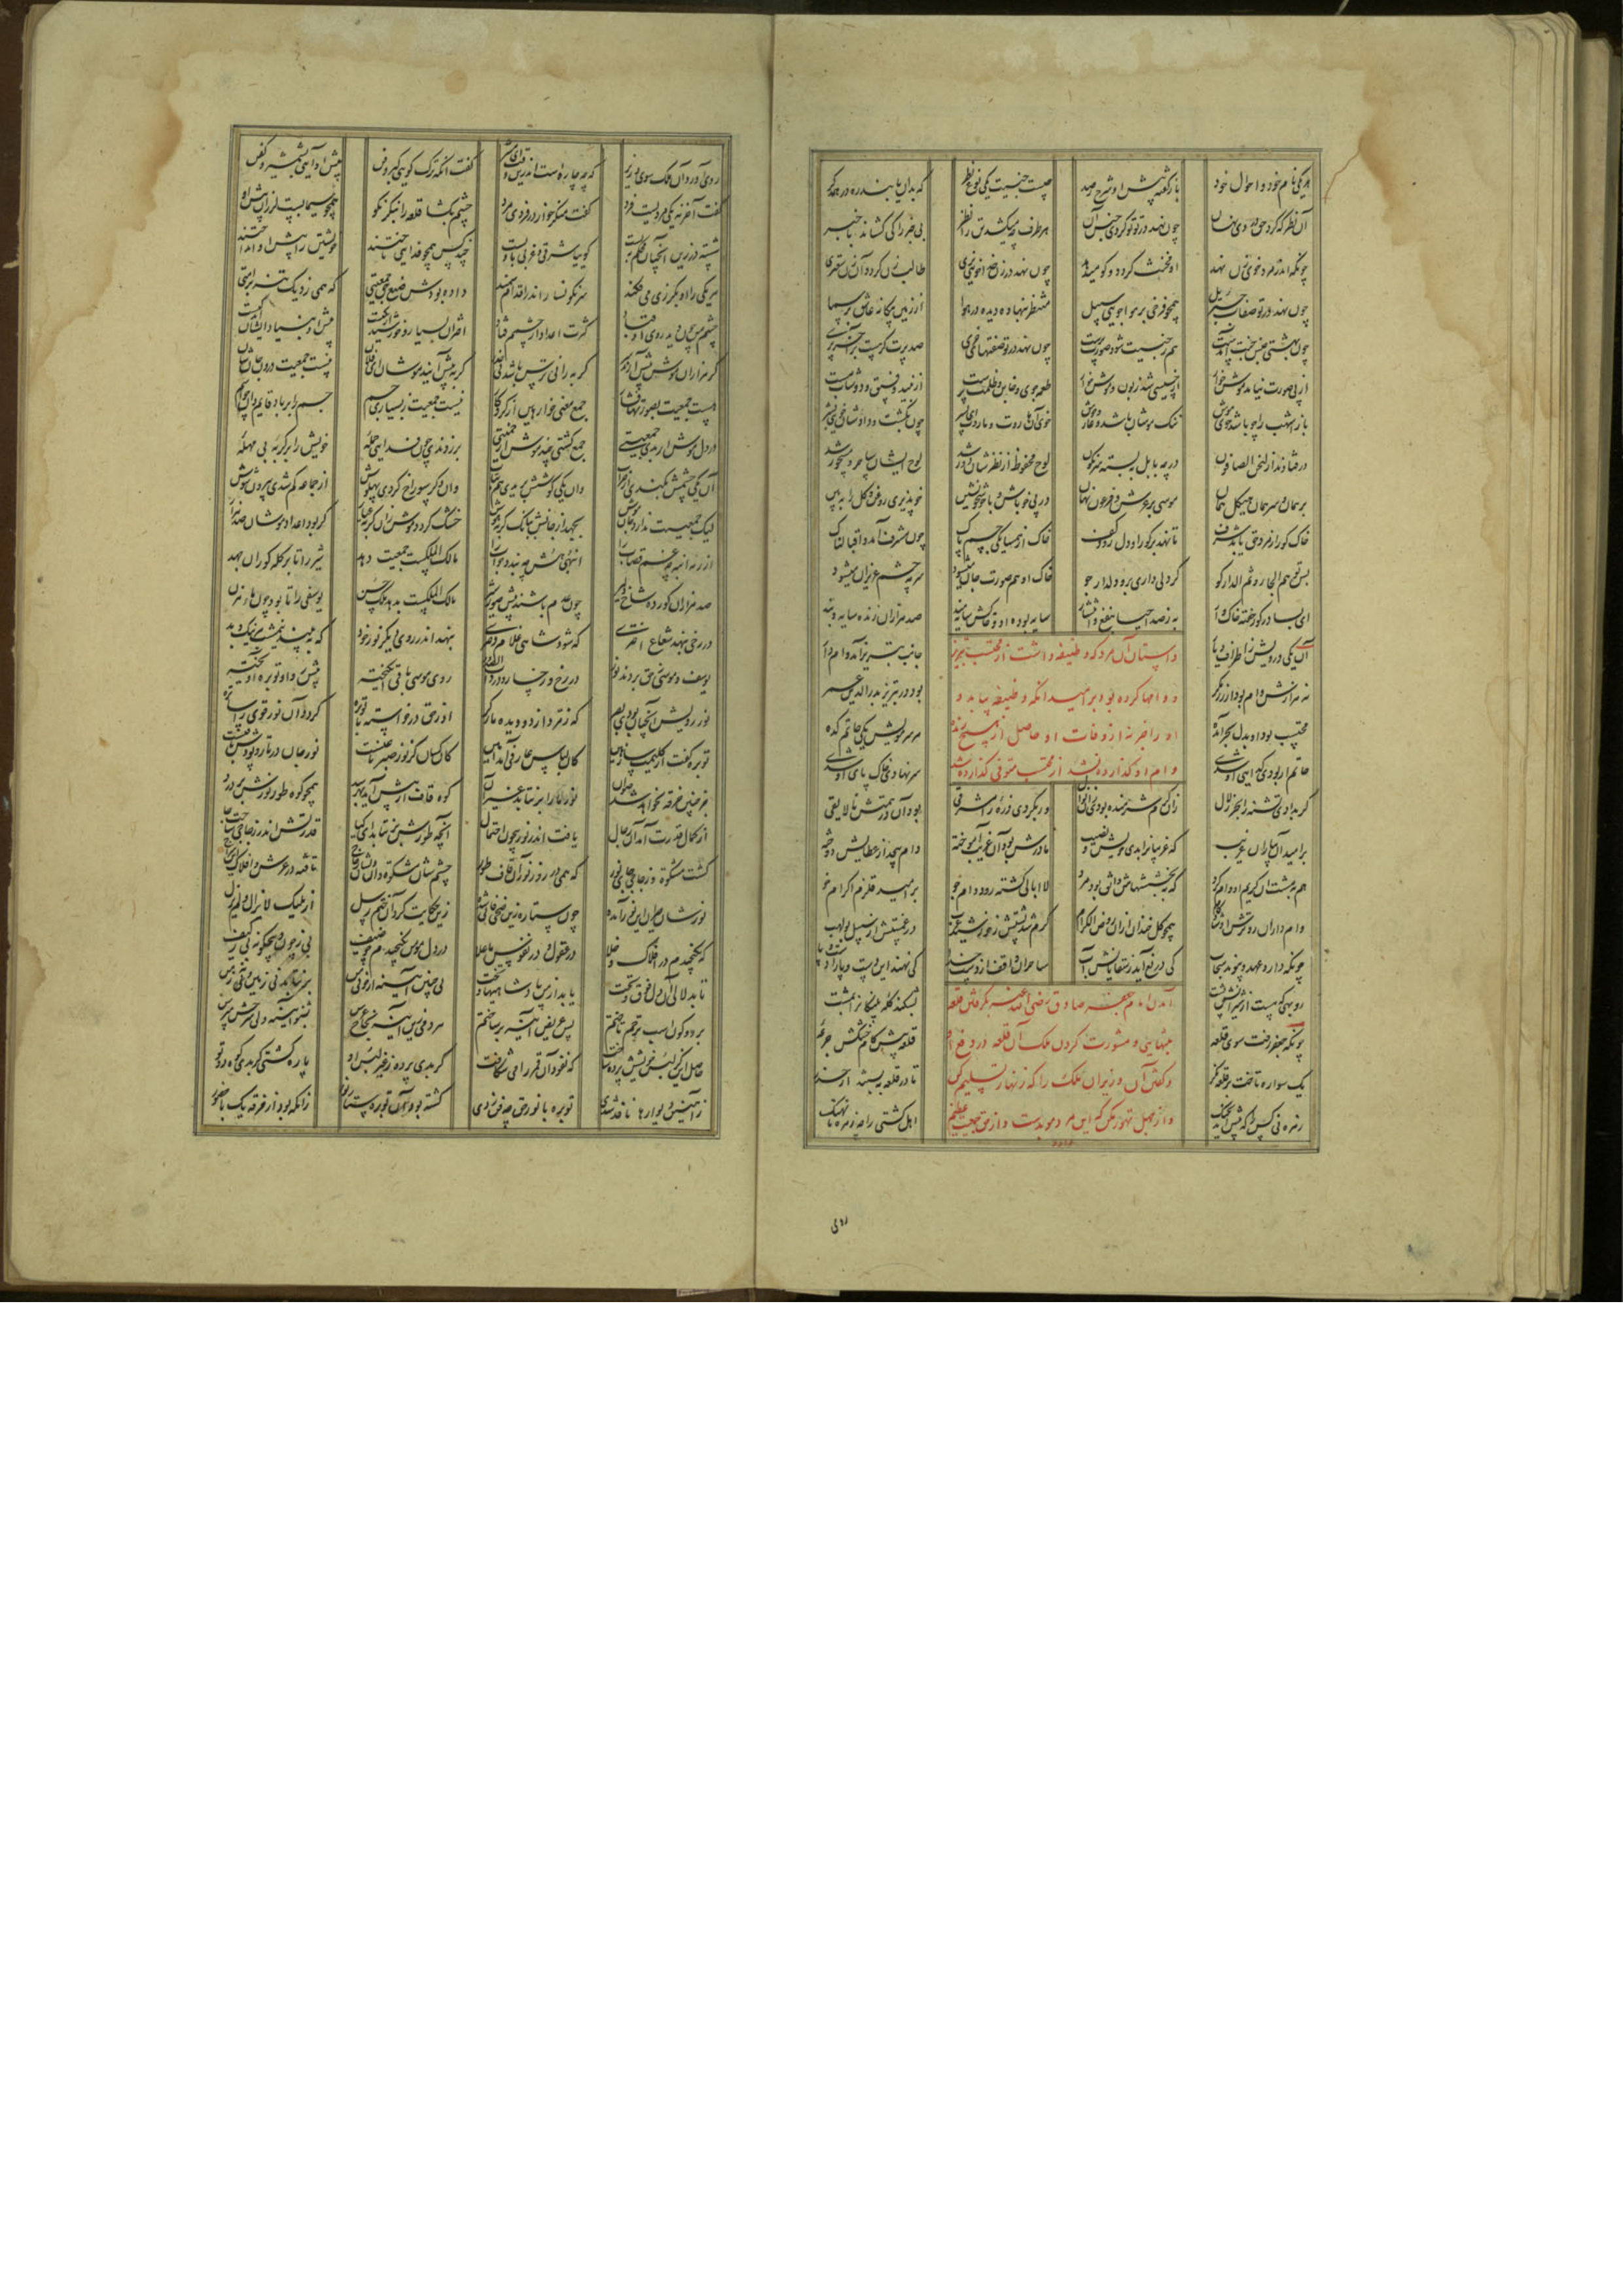 هر یکی نام خود و احوال خود باز گفته پیش او شرح رصد چیست جنسیت یکی نوع نظر که بدان یابند ره در همدگر
آن نظر که کرد حق در وی نهان چون نهد در تو تو گردی جنس آن هر طرف چه میکشد تن را نظر بی خبر را کی کشاند با خبر
چونکه اندر مرد خوی زن نهد او مخنث گردد و گون میدهد چون نهد در زن خدا خوی نری طالب زن گردد آن زن سعتری
چون نهد در تو صفات جبرئیل همچو فرخی بر هوا جویی سبیل منتظر بنهاده دیده در هوا از زمین بیگانه عاشق بر سما
چون نهد در تو صفتهای خری صد پرت گر هست بر آخر پری
از پی صورت نیامد موش خوار از خبیثی شد زبون موش خوار طعمه جوی و خاین و ظلمت پرست از پنیر و فستق و دوشاب مست
باز اشهب را چو باشد خوی موش ننگ موشان باشد و عار وحوش خوی آن هاروت و ماروت ای پسر چون بگشت و دادشان خوی بشر
در فتادند از لنحن الصافون در چه بابل ببسته سرنگون لوح محفوظ از نظرشان دور شد لوح ایشان ساحر و مسحور شد
پر همان و سر همان هیکل همان موسیی بر عرش و فرعونی مهان در پی خو باش و با خوشخو نشین خوپذیری روغن و گل را ببین
خاک گور از مرد حق یابد شرف تا نهد بر گور او دل روی و کف خاک از همسایگی جسم پاک چون مشرف آمد و اقبالناک
پس تو هم الجار ثم الدار گو گر دلی داری برو دلدار جو خاک او هم سیرت جان میشود سرمه چشم عزیزان میشود
ای بسا در گور خفته خاک وار به ز صد احیا بنفع و انتشار سایه بوده او و خاکش سایه مند صد هزاران زنده سایه ویند
داستان آن مرد که وظیفه داشت از محتسب تبریز
و وامها کرده بود بر امید آنکه وظیفه بیابد و
او را خبر نه از وفات او حاصل از هیچ زنده
وام او گذارده نشد از محتسب متوفی گذارده شد
آن یکی درویش ز اطراف دیار جانب تبریز آمد وام دار
نه هزارش وام بود از زر مگر بود در تبریز بدرالدین عمر
محتسب بود او بدل بحر آمده هر سر مویش یکی حاتم کده
حاتم ار بودی گدای او شدی سر نهادی خاک پای او شدی
گر بدادی تشنه را بحری زلال در کرم شرمنده بودی زان نوال ور بکردی ذره را مشرقی بود آن در همتش نالایقی
بر امید او بیامد آن غریب کو غریبان را بدی خویش و نسیب با درش بود آن غریب آموخته وام بیحد از عطایش دوخته
هم به پشت آن کریم او وام کرد که ببخششهاش واثق بود مرد لاابالی گشته زو و وام جو بر امید قلزم اکرام خو
وام داران رو ترش او شادکام همچو گل خندان از آن روض الکرام گرم شد پشتش ز خورشید عرب چه غمستش از سبال بولهب
چونکه دارد عهد و پیوند سحاب کی دریغ آید ز سقایانش آب ساحران واقف از دست خدا کی نهند این دست و پا را دست و پا
روبهی که هست زان شیرانش پشت بشکند کله پلنگان را بمشت
آمدن امام جعفر صادق رضی الله عنه بگرفتن قلعه
بتنهایی و مشورت کردن ملک آن قلعه در دفع او
و گفتن آن وزیران ملک را که زنهار تسلیم کن
و از جهل تهور مکن که این مرد مؤیدست و از حق جمعیت عظیم
دارد
چونکه جعفر رفت سوی قلعه قلعه پیش کام خشکش جرعه
یک سواره تاخت تا قلعه بکر تا در قلعه ببستند از حذر
زهره نی کس را که پیش آید بجنگ اهل کشتی را چه زهره با نهنگ
روی آورد آن ملک سوی وزیر که چه چاره است اندرین وقت ای مشیر گفت آنکه ترک گویی کبر و فن پیش او آیی بشمشیر و کفن
گفت آخر نه یکی مردیست فرد گفت منگر خوار در فردی مرد چشم بگشا قلعه را بنگر نکو همچو سیمابست لرزان پیش او
شسته در زین آنچنان محکم پیست گوییا شرقی و غربی با ویست چند کس همچون فدایی تاختند خویشتن را پیش او انداختند
هر یکی را او بگرزی می فکند سرنگونسار اندر اقدام سمند داده بودش صنع حق جمعیتی که همی زد یک تنه بر امتی
چشم من چون دید روی آن قباد کثرت اعداد از چشمم فتاد اختران بسیار و خورشید ار یکیست پیش او بنیاد ایشان مندکیست
گر هزاران موش پیش آرند سر گربه را نی ترس باشد نی حذر کی به پیش آیند موشان ای فلان نیست جمعیت درون جانشان
هست جمعیت بصورتها فشار جمع معنی خواه هین از کردگار نیست جمعیت ز بسیاری جسم جسم را بر باد قایم دان چو اسم
در دل موش ار بدی جمعیتی جمع گشتی چند موش از حمیتی بر زدندی چون فدایی حمله خویش را بر گربه بی مهله
آن یکی چشمش بکندی از ضراب وان یکی گوشش دریدی هم بناب وان دگر سوراخ کردی پهلوش از جماعت گم شدی بیرون شوش
لیک جمعیت ندارد جان موش بجهد از جانش ببانگ گربه هوش خشک گردد موش زان گربه عیار گر بود اعداد موشان صد هزار
از رمه انبه چه غم قصاب را انبهی هش چه بندد خواب را مالک الملکست جمعیت دهد شیر را تا بر گله گوران جهد
صد هزاران گور ده شاخ و دلیر چون عدم باشند پیش صول شیر مالک الملکست بدهد ملک حسن یوسفی را تا بود چون ماء مزن
در رخی بنهد شعاع اختری که شود شاهی غلام دختری بنهد اندر روی دیگر نور خود که ببیند نیمشب هر نیک و بد
یوسف و موسی ز حق بردند نور در رخ و رخسار و در ذات الصدور روی موسی بارقی انگیخته پیش رو او توبره آویخته
نور رویش آنچنان بردی بصر که زمرد از دو دیده مار کر او ز حق درخواسته تا توبره گردد آن نور قوی را ساتره
توبره گفت از گلیمت ساز هین کان لباس عارفی آمد امین کان کسا از نور صبری یافتست نور جان در تار و پودش تافتست
جز چنین خرقه نخواهد شد صوان نور ما را بر نتابد غیر آن کوه قاف ار پیش آید بهر سد همچو کوه طور نورش بر درد
از کمال قدرت ابدان رجال یافت اندر نور بیچون احتمال آنچه طورش بر نتابد ای کیا قدرتش اندر زجاجی ساخت جا
گشت مشکوة و زجاجی جای نور که همی درد ز نور آن قاف و طور جسمشان مشکوة دان دلشان زجاج تافته بر عرش و افلاک این سراج
نورشان حیران این نور آمده چون ستاره زین ضحی فانی شده زین حکایت کرد آن ختم رسل از ملیک لایزال و لم یزل
که نگنجیدم در افلاک و خلا در عقول و در نفوس با علا در دل مؤمن بگنجیدم چو ضیف بی ز چون و بی چگونه بی ز کیف
تا بدلالی آن دل فوق و تحت یابد از من پادشاهیها و بخت بی چنین آیینه از خوبی من بر نتابد نی زمین و نی زمن
بر دو کون اسب ترحم تاختیم بس عریض آیینه بر ساختیم هر دمی زین آینه پنجاه عرس بشنو آیینه ولی شرحش مپرس
حاصل این کز لبس خویشش پرده ساخت که نفوذ آن قمر را می شناخت گر بدی پرده ز غیر لبس او پاره گشتی گر بدی کوه دو تو
ز آهنین دیوارها نافذ شدی توبره با نور حق چه فن زدی گشته بود آن توبره صاحب تفی زانکه بود از خرقه یک